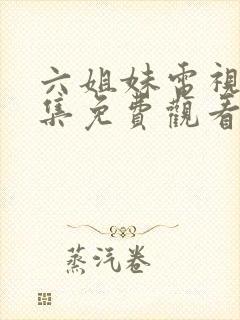 六姐妹電視
集免費觀看
蒸汽卷